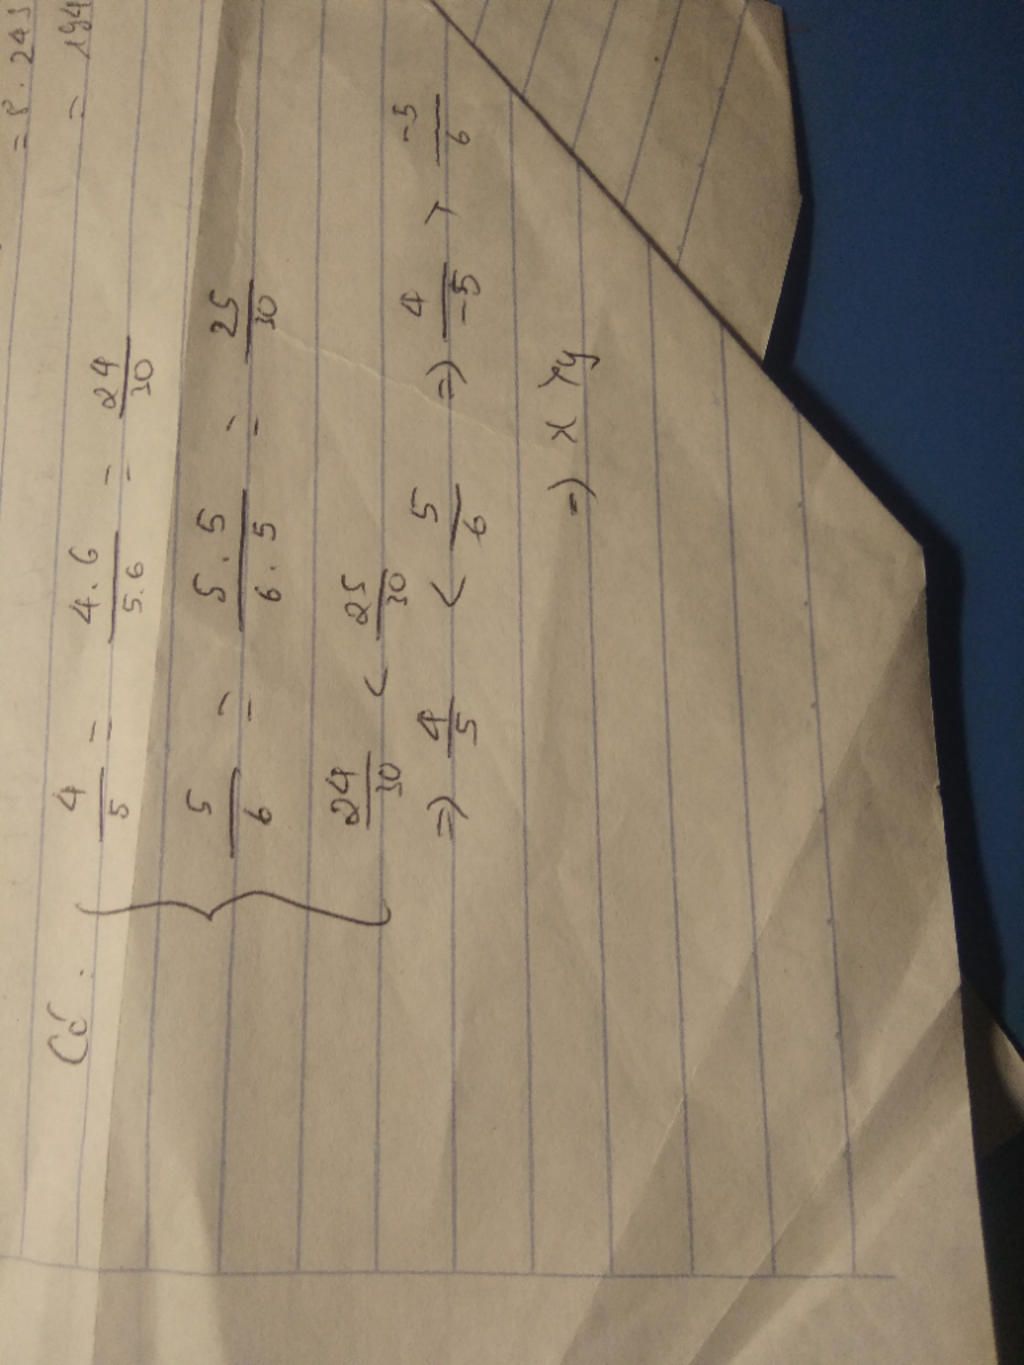 Có: 4/5 = 4.6/5.6 = 24/30
5/6 = 5.5/6.5 = 25/30
24/30 < 25/30
=> 4/5 < 5/6 => 4/-5 > -5/6
=> x > y